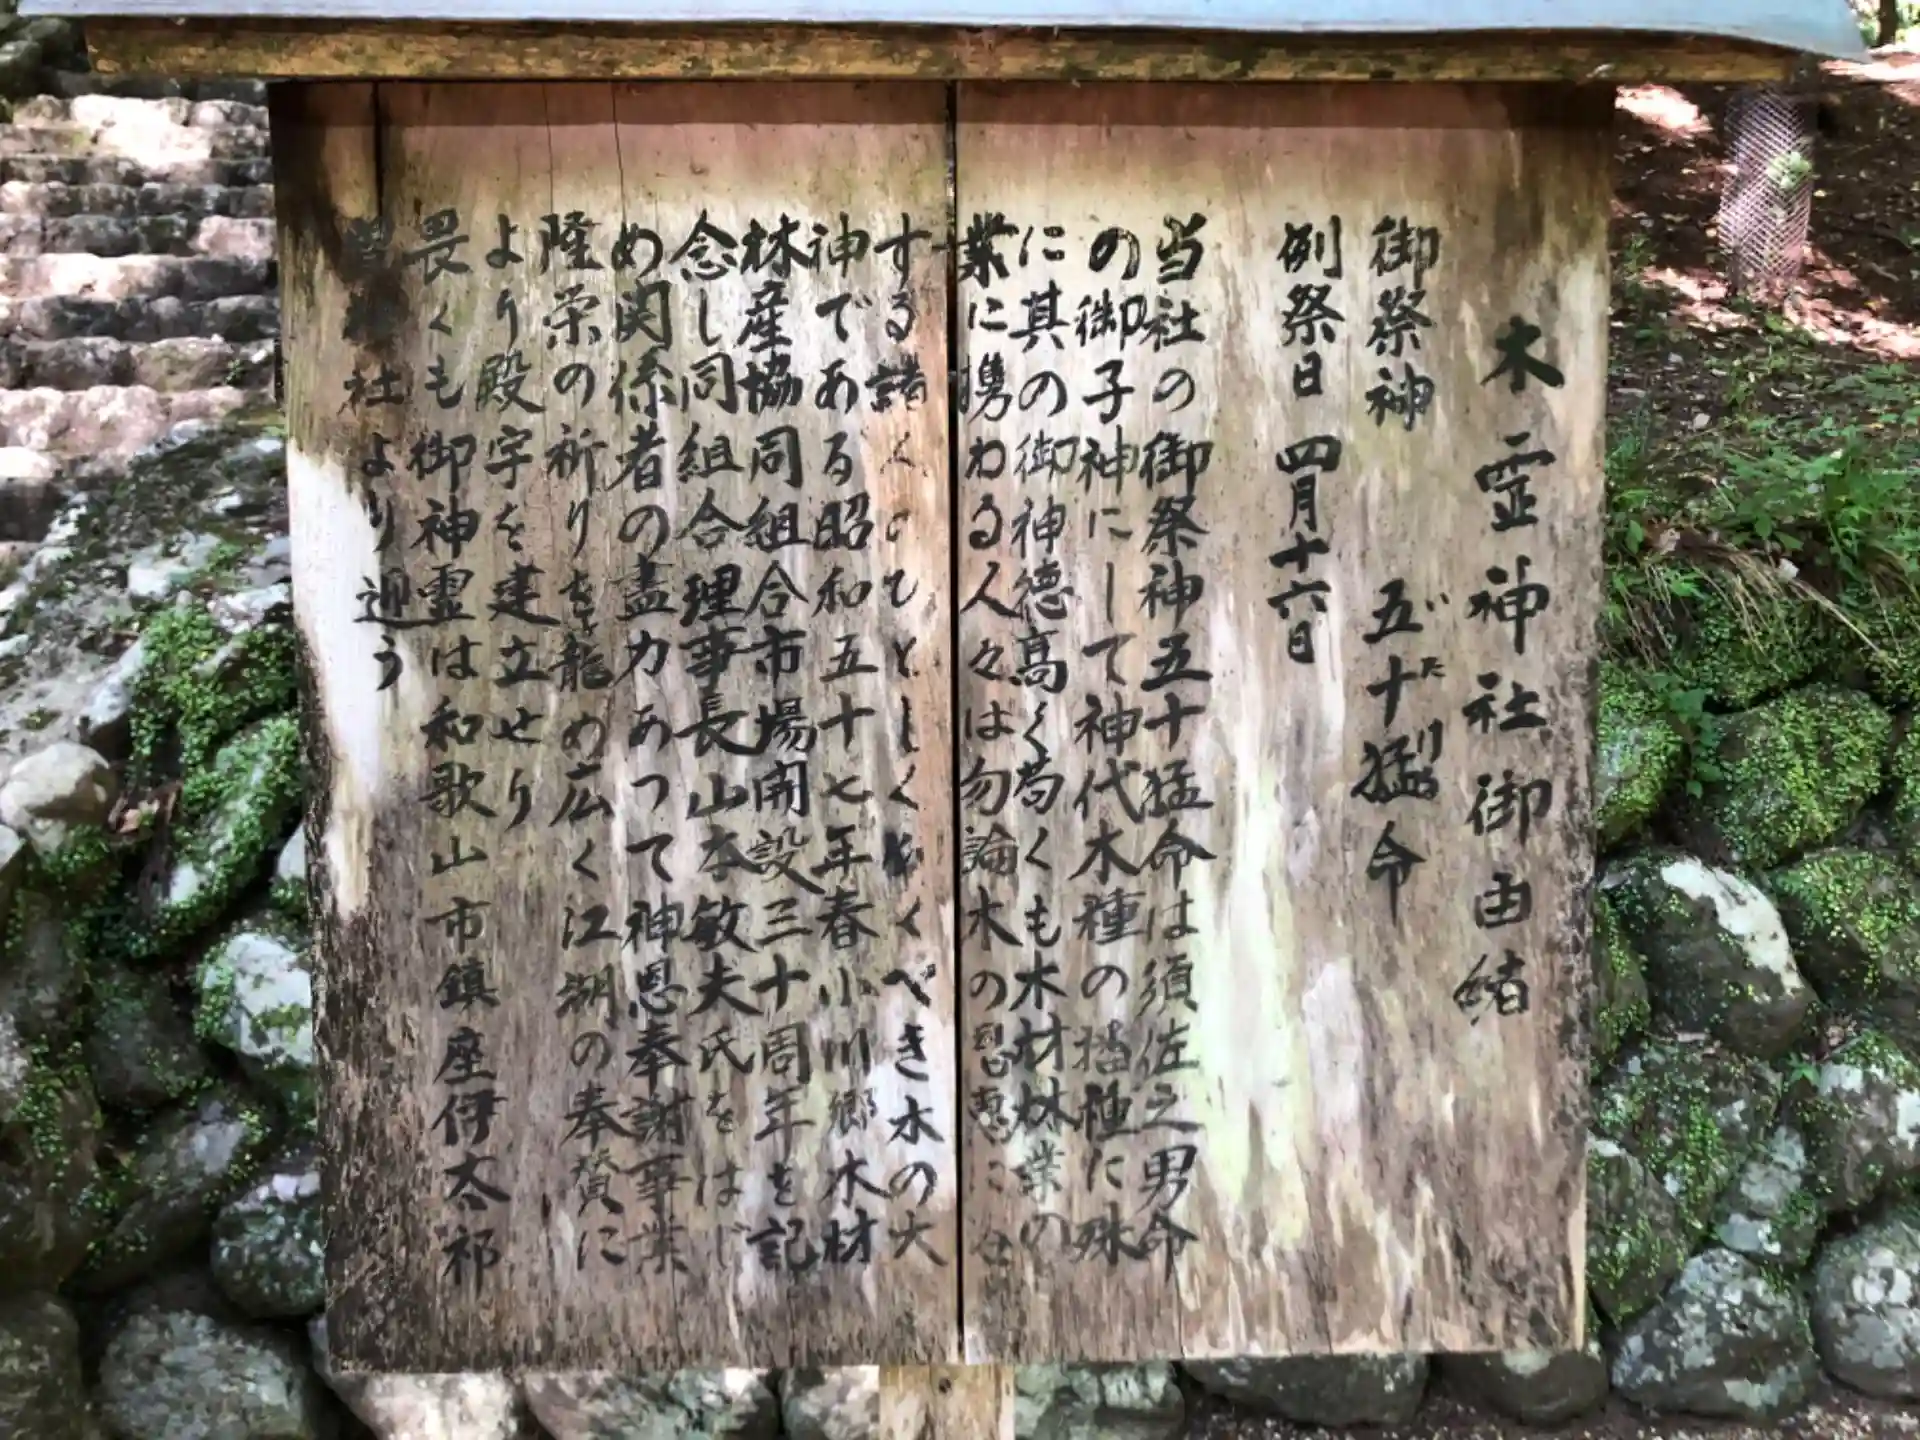 木霊神社御由緒
御祭神 五十猛命
いたける
例祭日 四月十六日
当社の御祭神五十猛命は須佐之男命
の御子神にして神代木種の播種に殊
に其の御神徳高く苟くも木材林業の
業に携わる人々は勿論木の恩恵に
する諸々のひとしくべき木の大
神である昭和五十七年春小川郷木材
林産協同組合市場開設三十周年を記
念し同組合理事長山本敏夫氏をはじ
め関係者の盡力あつて神恩奉謝事業
隆栄の祈りを籠め広く江湖の奉賛に
より殿宇を建立せり
畏くも御神霊は和歌山市鎮座伊太祁
曽神社より迎う